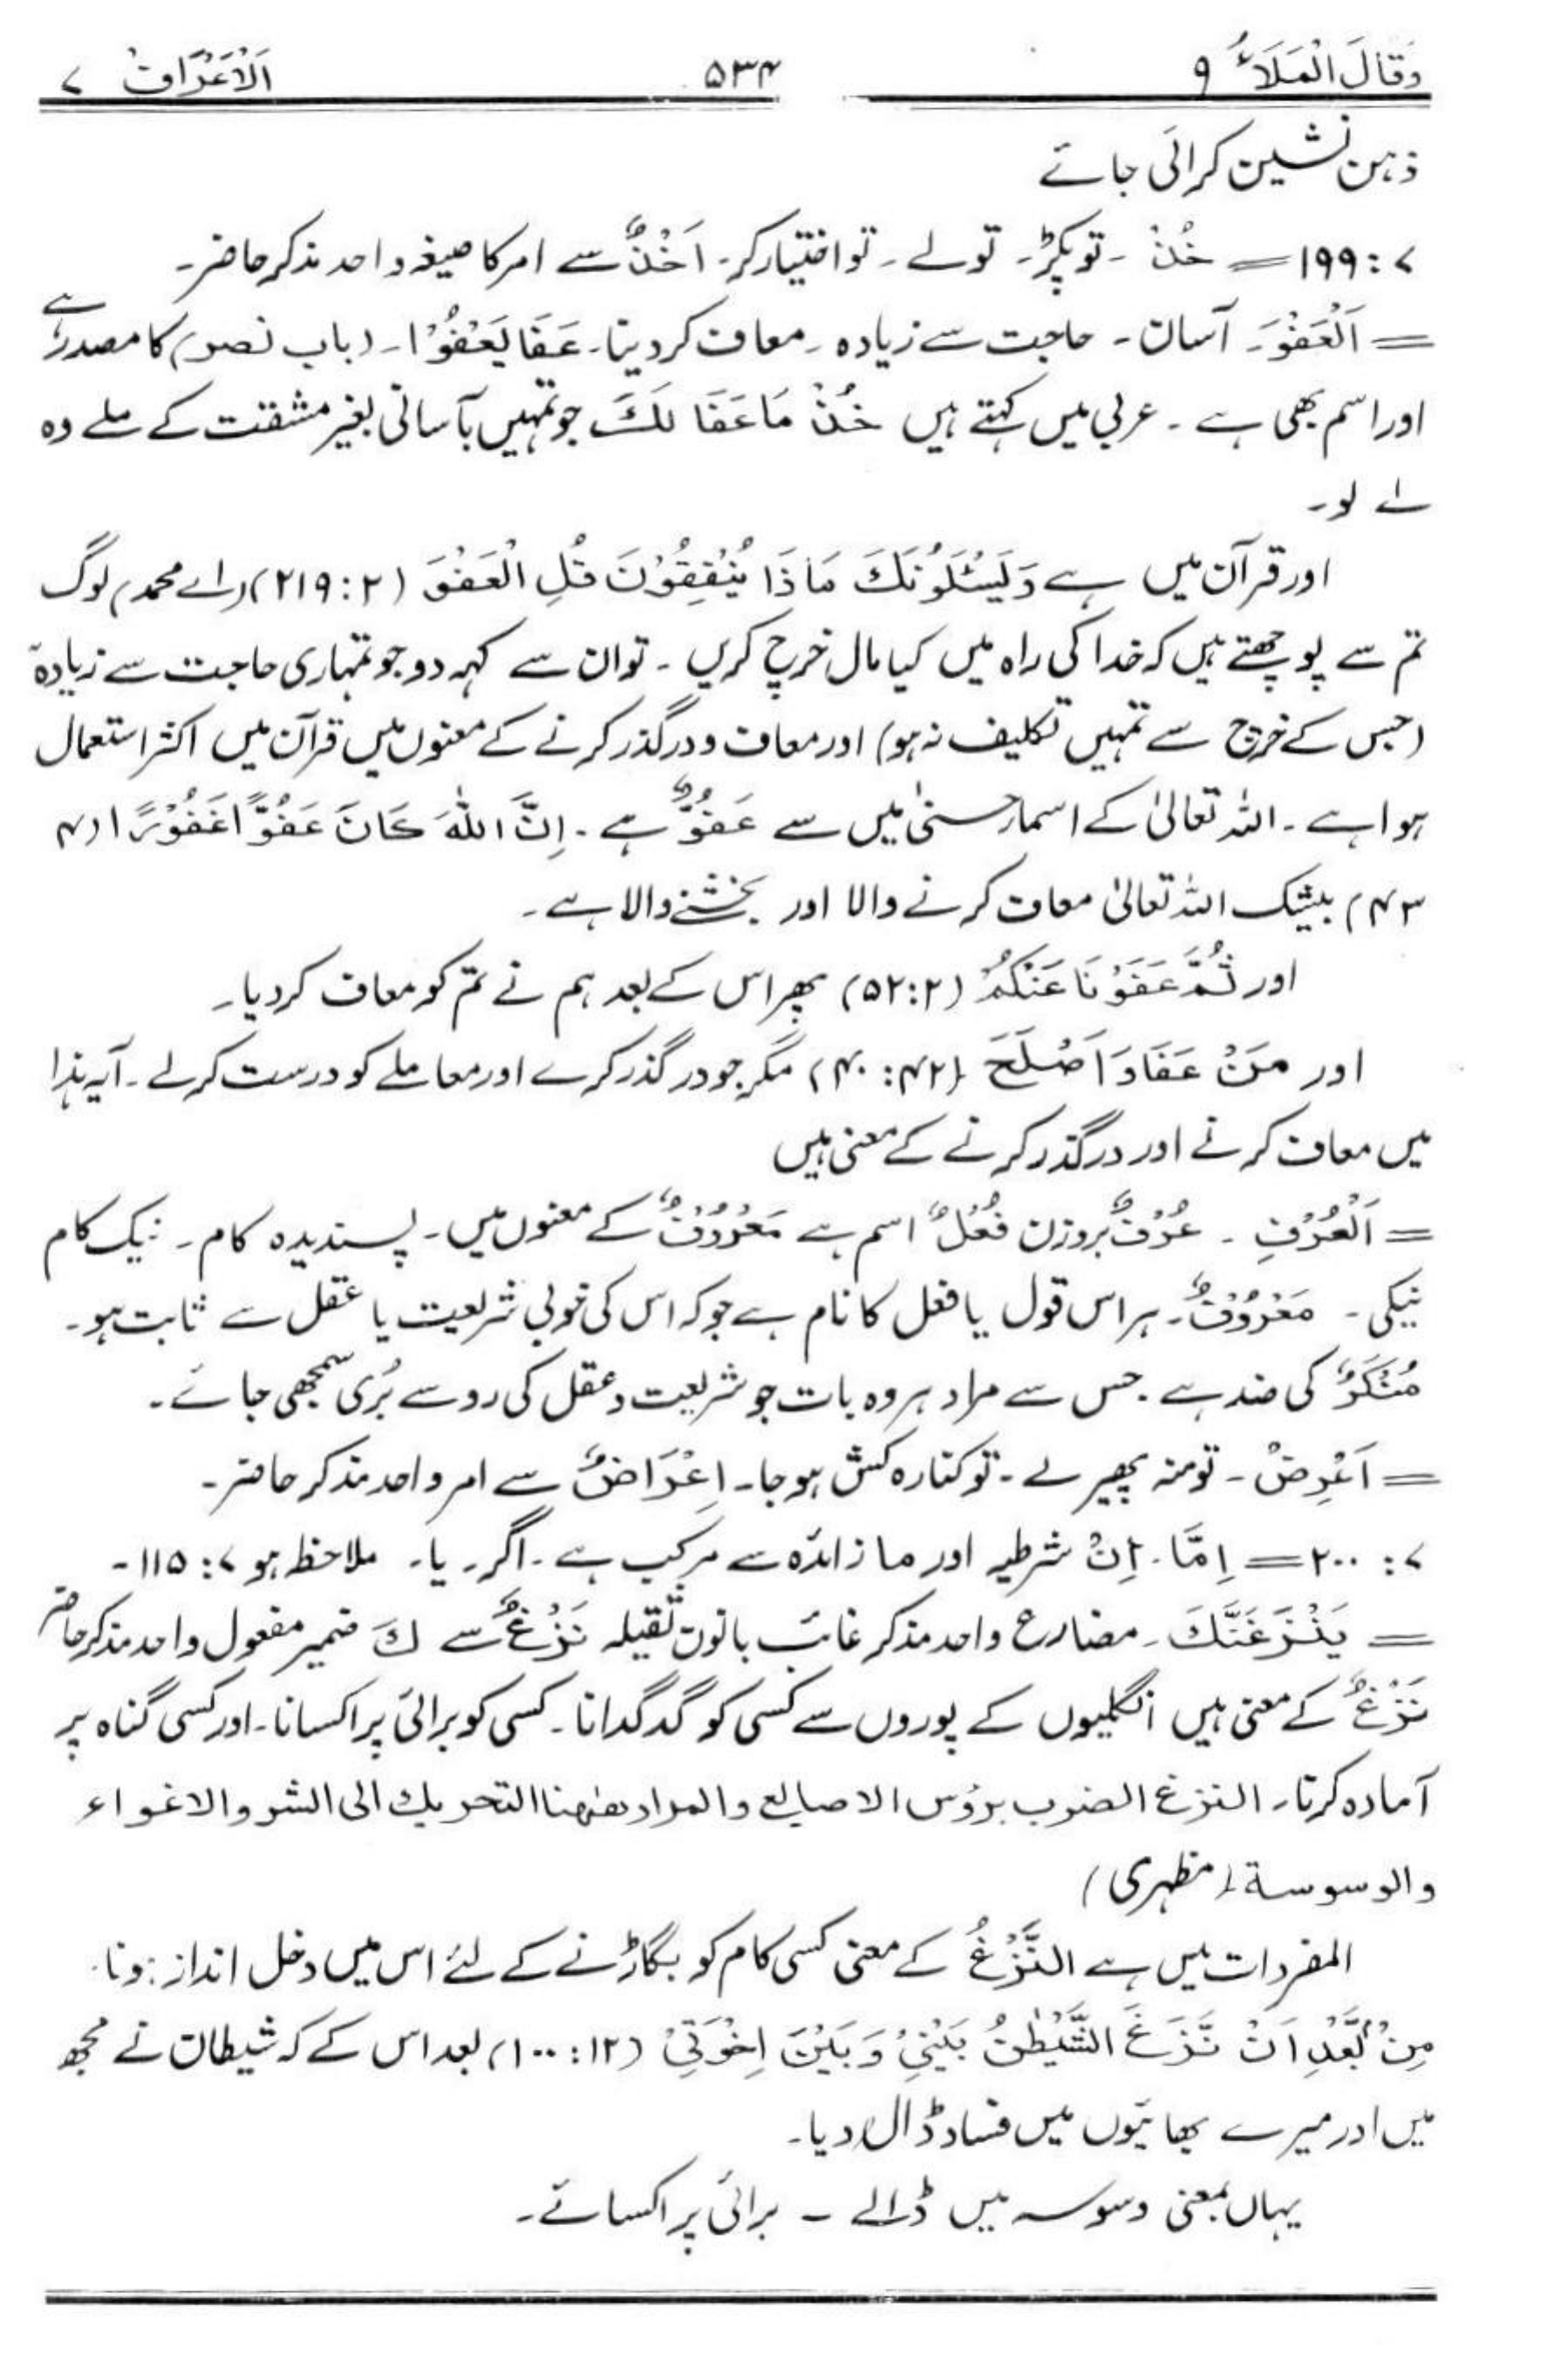 وَقَالَ الْمَلَاُ ۹ ۵۳۴ اَلْاَعْرَاف ۷
ذہن نشین کرائی جائے
۷: ۱۹۹ = خُذْ ۔ تو پکڑ۔ تو لے ۔ تو اختیار کر۔ اَخْذٌ سے امر کا صیغہ واحد مذکر حاضر۔
= اَلْعَفْوَ۔ آسان ۔ حاجت سے زیادہ ۔ معاف کر دینا۔ عَفَا یَعْفُوْا۔ (باب نصر) کا مصدر ہے
اور اسم بھی ہے ۔ عربی میں کہتے ہیں خُذْ مَا عَفَا لَكَ جو تمہیں بآسانی بغیر مشقت کے ملے وہ
لے لو۔
اور قرآن میں ہے وَیَسْئَلُوْنَكَ مَاذَا یُنْفِقُوْنَ قُلِ الْعَفْوَ (۲: ۲۱۹) (اے محمد) لوگ
تم سے پوچھتے ہیں کہ خدا کی راہ میں کیا مال خرچ کریں ۔ تو ان سے کہہ دو جو تمہاری حاجت سے زیادہ
(جس کے خرچ سے تمہیں تکلیف نہ ہو) اور معاف و درگذر کرنے کے معنوں میں قرآن میں اکثر استعمال
ہوا ہے ۔ اللہ تعالیٰ کے اسمار حسنیٰ میں سے عَفُوٌّ ہے ۔ اِنَّ اللّٰهَ كَانَ عَفُوًّا غَفُوْرًا (۴
۴۳) بیشک اللہ تعالیٰ معاف کرنے والا اور بخشنے والا ہے ۔
اور ثُمَّ عَفَوْنَا عَنْكُمْ (۲: ۵۲) پھر اس کے بعد ہم نے تم کو معاف کر دیا۔
اور مَنْ عَفَا وَاَصْلَحَ (۴۲: ۴۰) مگر جو درگذر کرے اور معاملے کو درست کرلے ۔ آیہ ہذا
میں معاف کرنے اور درگذر کرنے کے معنی ہیں
= اَلْعُرْفِ ۔ عُرْفٌ بروزن فُعْلٌ اسم ہے مَعْرُوْفٌ کے معنوں میں ۔ پسندیدہ کام ۔ نیک کام
نیکی ۔ مَعْرُوْفٌ۔ ہر اس قول یا فعل کا نام ہے جو کہ اس کی خوبی شریعت یا عقل سے ثابت ہو۔
مُنْكَرٌ کی ضد ہے ۔ جس سے مراد ہر وہ بات جو شریعت و عقل کی رو سے بُری سمجھی جائے ۔
= اَعْرِضْ ۔ تو منہ پھیر لے ۔ تو کنارہ کش ہو جا۔ اِعْرَاضٌ سے امر واحد مذکر حاضر۔
۷: ۲۰۰ = اِمَّا۔ اِنْ شرطیہ اور ما زائدہ سے مرکب ہے ۔ اگر۔ یا۔ ملاحظہ ہو ۷: ۱۱۵ ۔
= یَنْزَغَنَّكَ ۔ مضارع واحد مذکر غائب بانون ثقیلہ نَزْغٌ سے كَ ضمیر مفعول واحد مذکر حاضر
نَزْغٌ کے معنی ہیں انگلیوں کے پوروں سے کسی کو گدگدانا۔ کسی کو برائی پر اکسانا۔ اور کسی گناہ پر
آمادہ کرنا۔ النزغ الضرب برؤس الاصابع والمراد ھٰھنا التحریك الی الشر والاغواء
والوسوسة (مظہری)
المفردات میں ہے النَّزْغُ کے معنی کسی کام کو بگاڑنے کے لئے اس میں دخل انداز ہونا۔
مِنْۢ بَعْدِ اَنْ نَّزَغَ الشَّیْطٰنُ بَیْنِیْ وَبَیْنَ اِخْوَتِیْ (۱۲: ۱۰۰) بعد اس کے کہ شیطان نے مجھ
میں اور میرے بھائیوں میں فساد ڈال دیا۔
یہاں بمعنی وسوسہ میں ڈالے ۔ برائی پر اکسائے ۔